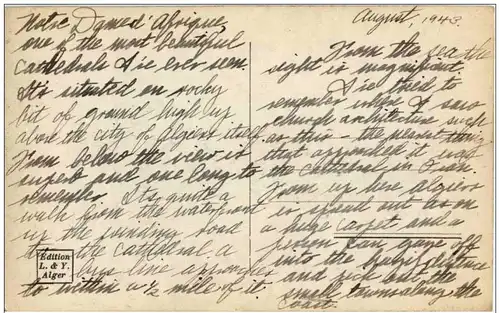 Notre Dame d'Afrique,
one of the most beautiful
cathedrals I've ever seen.
It's situated on rocky
bit of ground high up
above the city of Algiers itself.
From below the view is
superb and one long to
remember. Its quite a
walk from the waterfront
up the winding road
to the cathedral. A
bus line approaches
to within a ½ mile of it.
Edition
L. & Y.
Alger
August, 1943.
From the sea the
sight is magnificent.
I've tried to
remember where I saw
church architecture such
as this - the nearest thing
that approached it was
the cathedral in Oran.
From up here Algiers
is spread out as on
a huge carpet and a
person can gaze off
into the hazy distance
and pick out the
small towns along the
coast.